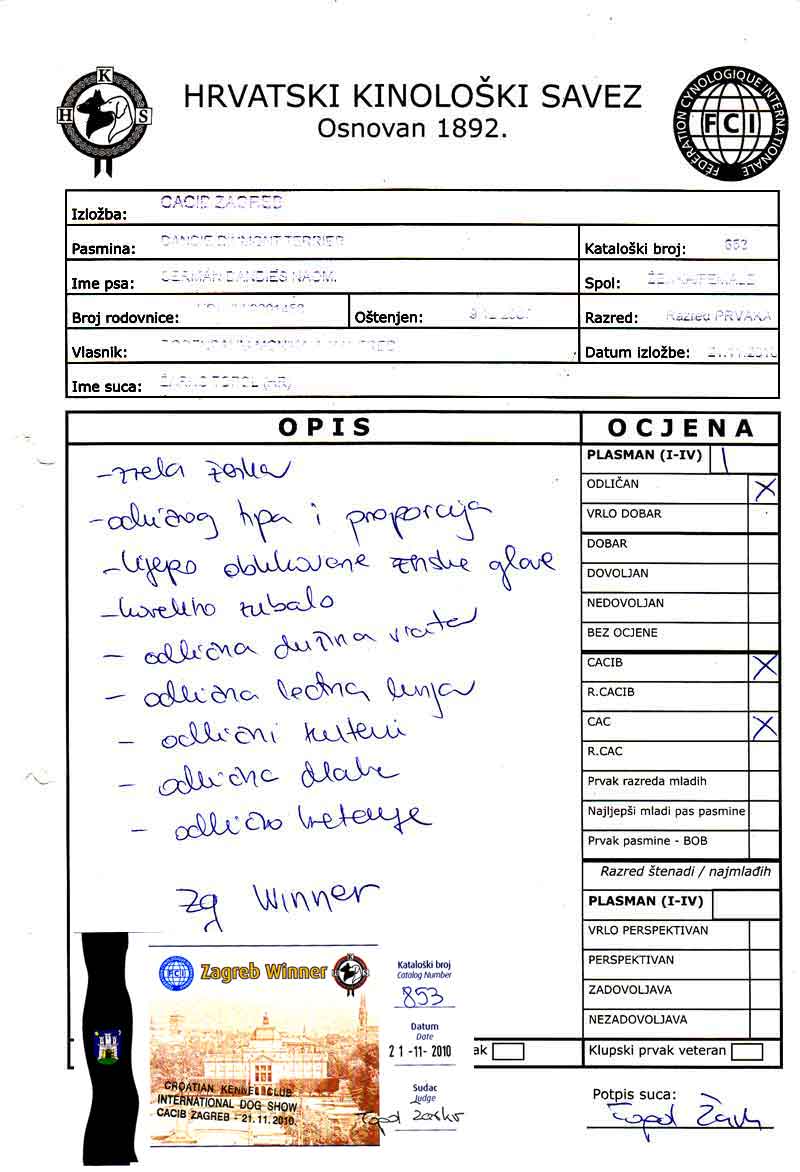 HRVATSKI KINOLOŠKI SAVEZ
Osnovan 1892.
H K S
FÉDÉRATION CYNOLOGIQUE INTERNATIONALE
FCI
Izložba: CACIB ZAGREB
Pasmina: DANDIE DINMONT TERRIER
Kataloški broj: 853
Ime psa:
Spol: ŽENKA/FEMALE
Broj rodovnice:
Oštenjen:
Razred: Razred PRVAKA
Vlasnik:
Datum izložbe: 21.11.2010
Ime suca: ŽARKO TOPOL (HR)
OPIS
OCJENA
PLASMAN (I-IV) 1
ODLIČAN X
VRLO DOBAR
DOBAR
DOVOLJAN
NEDOVOLJAN
BEZ OCJENE
CACIB X
R.CACIB
CAC X
R.CAC
Prvak razreda mladih
Najljepši mladi pas pasmine
Prvak pasmine - BOB
Razred štenadi / najmlađih
PLASMAN (I-IV)
VRLO PERSPEKTIVAN
PERSPEKTIVAN
ZADOVOLJAVA
NEZADOVOLJAVA
Klupski prvak veteran
- zrela ženka
- odličnog tipa i proporcija
- lijepo oblikovane ženske glave
- korektno zubalo
- odlična dužina vrata
- odlična leđna linija
- odlični kutevi
- odlična dlaka
- odlično kretanje
Zg Winner
FCI Zagreb Winner H K S
CROATIAN KENNEL CLUB
INTERNATIONAL DOG SHOW
CACIB ZAGREB - 21.11.2010.
Kataloški broj
Catalog Number
853
Datum
Date
21-11-2010
Sudac
Judge
Topol Žarko
ak
Potpis suca:
Topol Žarko